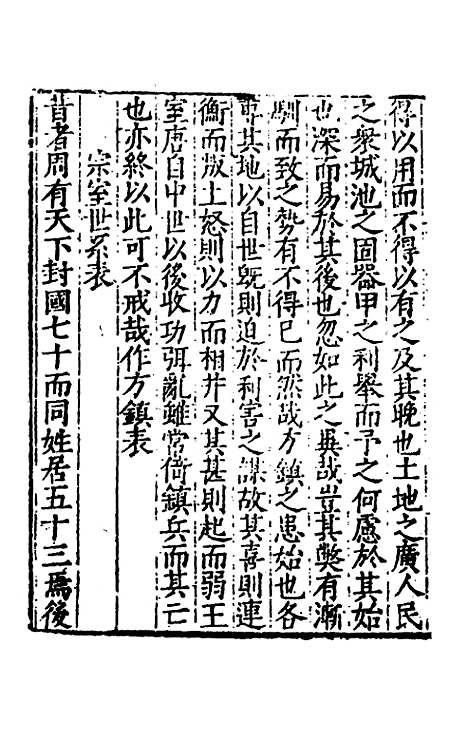 得以用而不得以有之及其晚也土地之廣人民
之衆城池之固器甲之利舉而予之何慮於其始
也深而易於其後也忽如此之異哉豈其弊有漸
馴而致之勢有不得已而然哉方鎮之患始也各
專其地以自世旣則迫於利害之謀故其喜則連
衡而叛上怒則以力而相幷又其甚則起而弱王
室唐自中世以後收功弭亂雖常倚鎮兵而其亡
也亦終以此可不戒哉作方鎮表
宗室世系表
昔者周有天下封國七十而同姓居五十三焉後